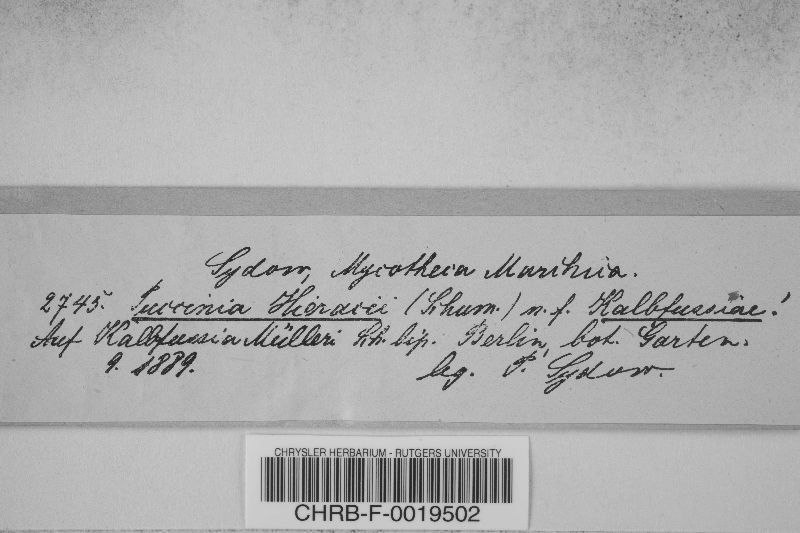 Sydow, Mycotheca Marchica.
2745. Puccinia Hieracii (Schum.) n. f. Kalbfussiae!
Auf Kalbfussia Mülleri Sch. bip. Berlin, bot. Garten.
9. 1889. leg. P. Sydow.
CHRYSLER HERBARIUM - RUTGERS UNIVERSITY
CHRB-F-0019502